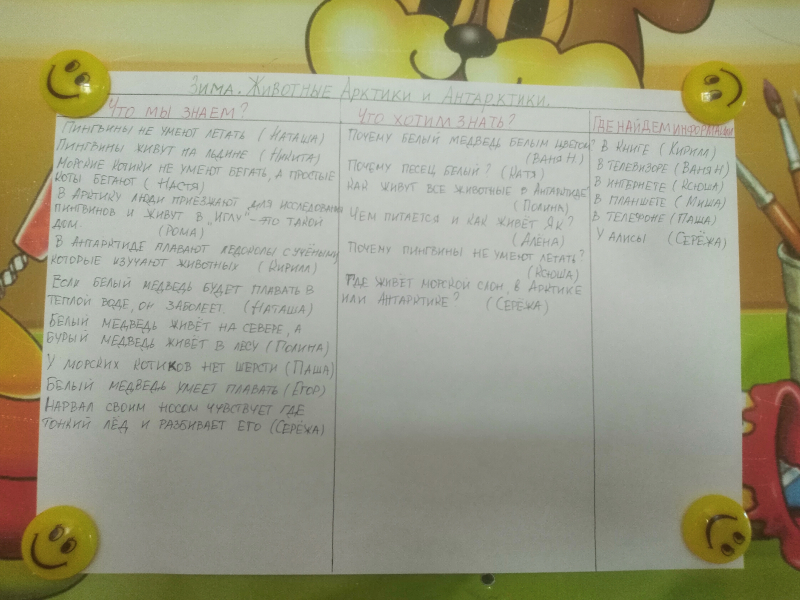 Зима. Животные Арктики и Антарктики.
Что мы знаем?
Пингвины не умеют летать (Наташа)
Пингвины живут на льдине (Никита)
Морские котики не умеют бегать, а простые
коты бегают (Настя)
В Арктику люди приезжают для исследования
пингвинов и живут в „иглу" - это такой
дом. (Рома)
В Антарктиде плавают ледоколы с учёными
которые изучают животных (Кирилл)
Если белый медведь будет плавать в
теплой воде, он заболеет. (Наташа)
Белый медведь живёт на севере, а
бурый медведь живёт в лесу (Полина)
У морских котиков нет шерсти (Паша)
Белый медведь умеет плавать (Егор)
Нарвал своим носом чувствует где
тонкий лёд и разбивает его (Серёжа)
Что хотим знать?
Почему белый медведь белым цветом?
(Ваня Н.)
Почему песец белый? (Катя)
Как живут все животные в Антарктиде
(Полина)
Чем питается и как живёт Як?
(Алёна)
Почему пингвины не умеют летать?
(Ксюша)
Где живёт морской слон, в Арктике
или Антарктике? (Серёжа)
Где найдем информацию
В книге (Кирилл)
В телевизоре (Ваня Н)
В интернете (Ксюша)
В планшете (Миша)
В телефоне (Паша)
У Алисы (Серёжа)